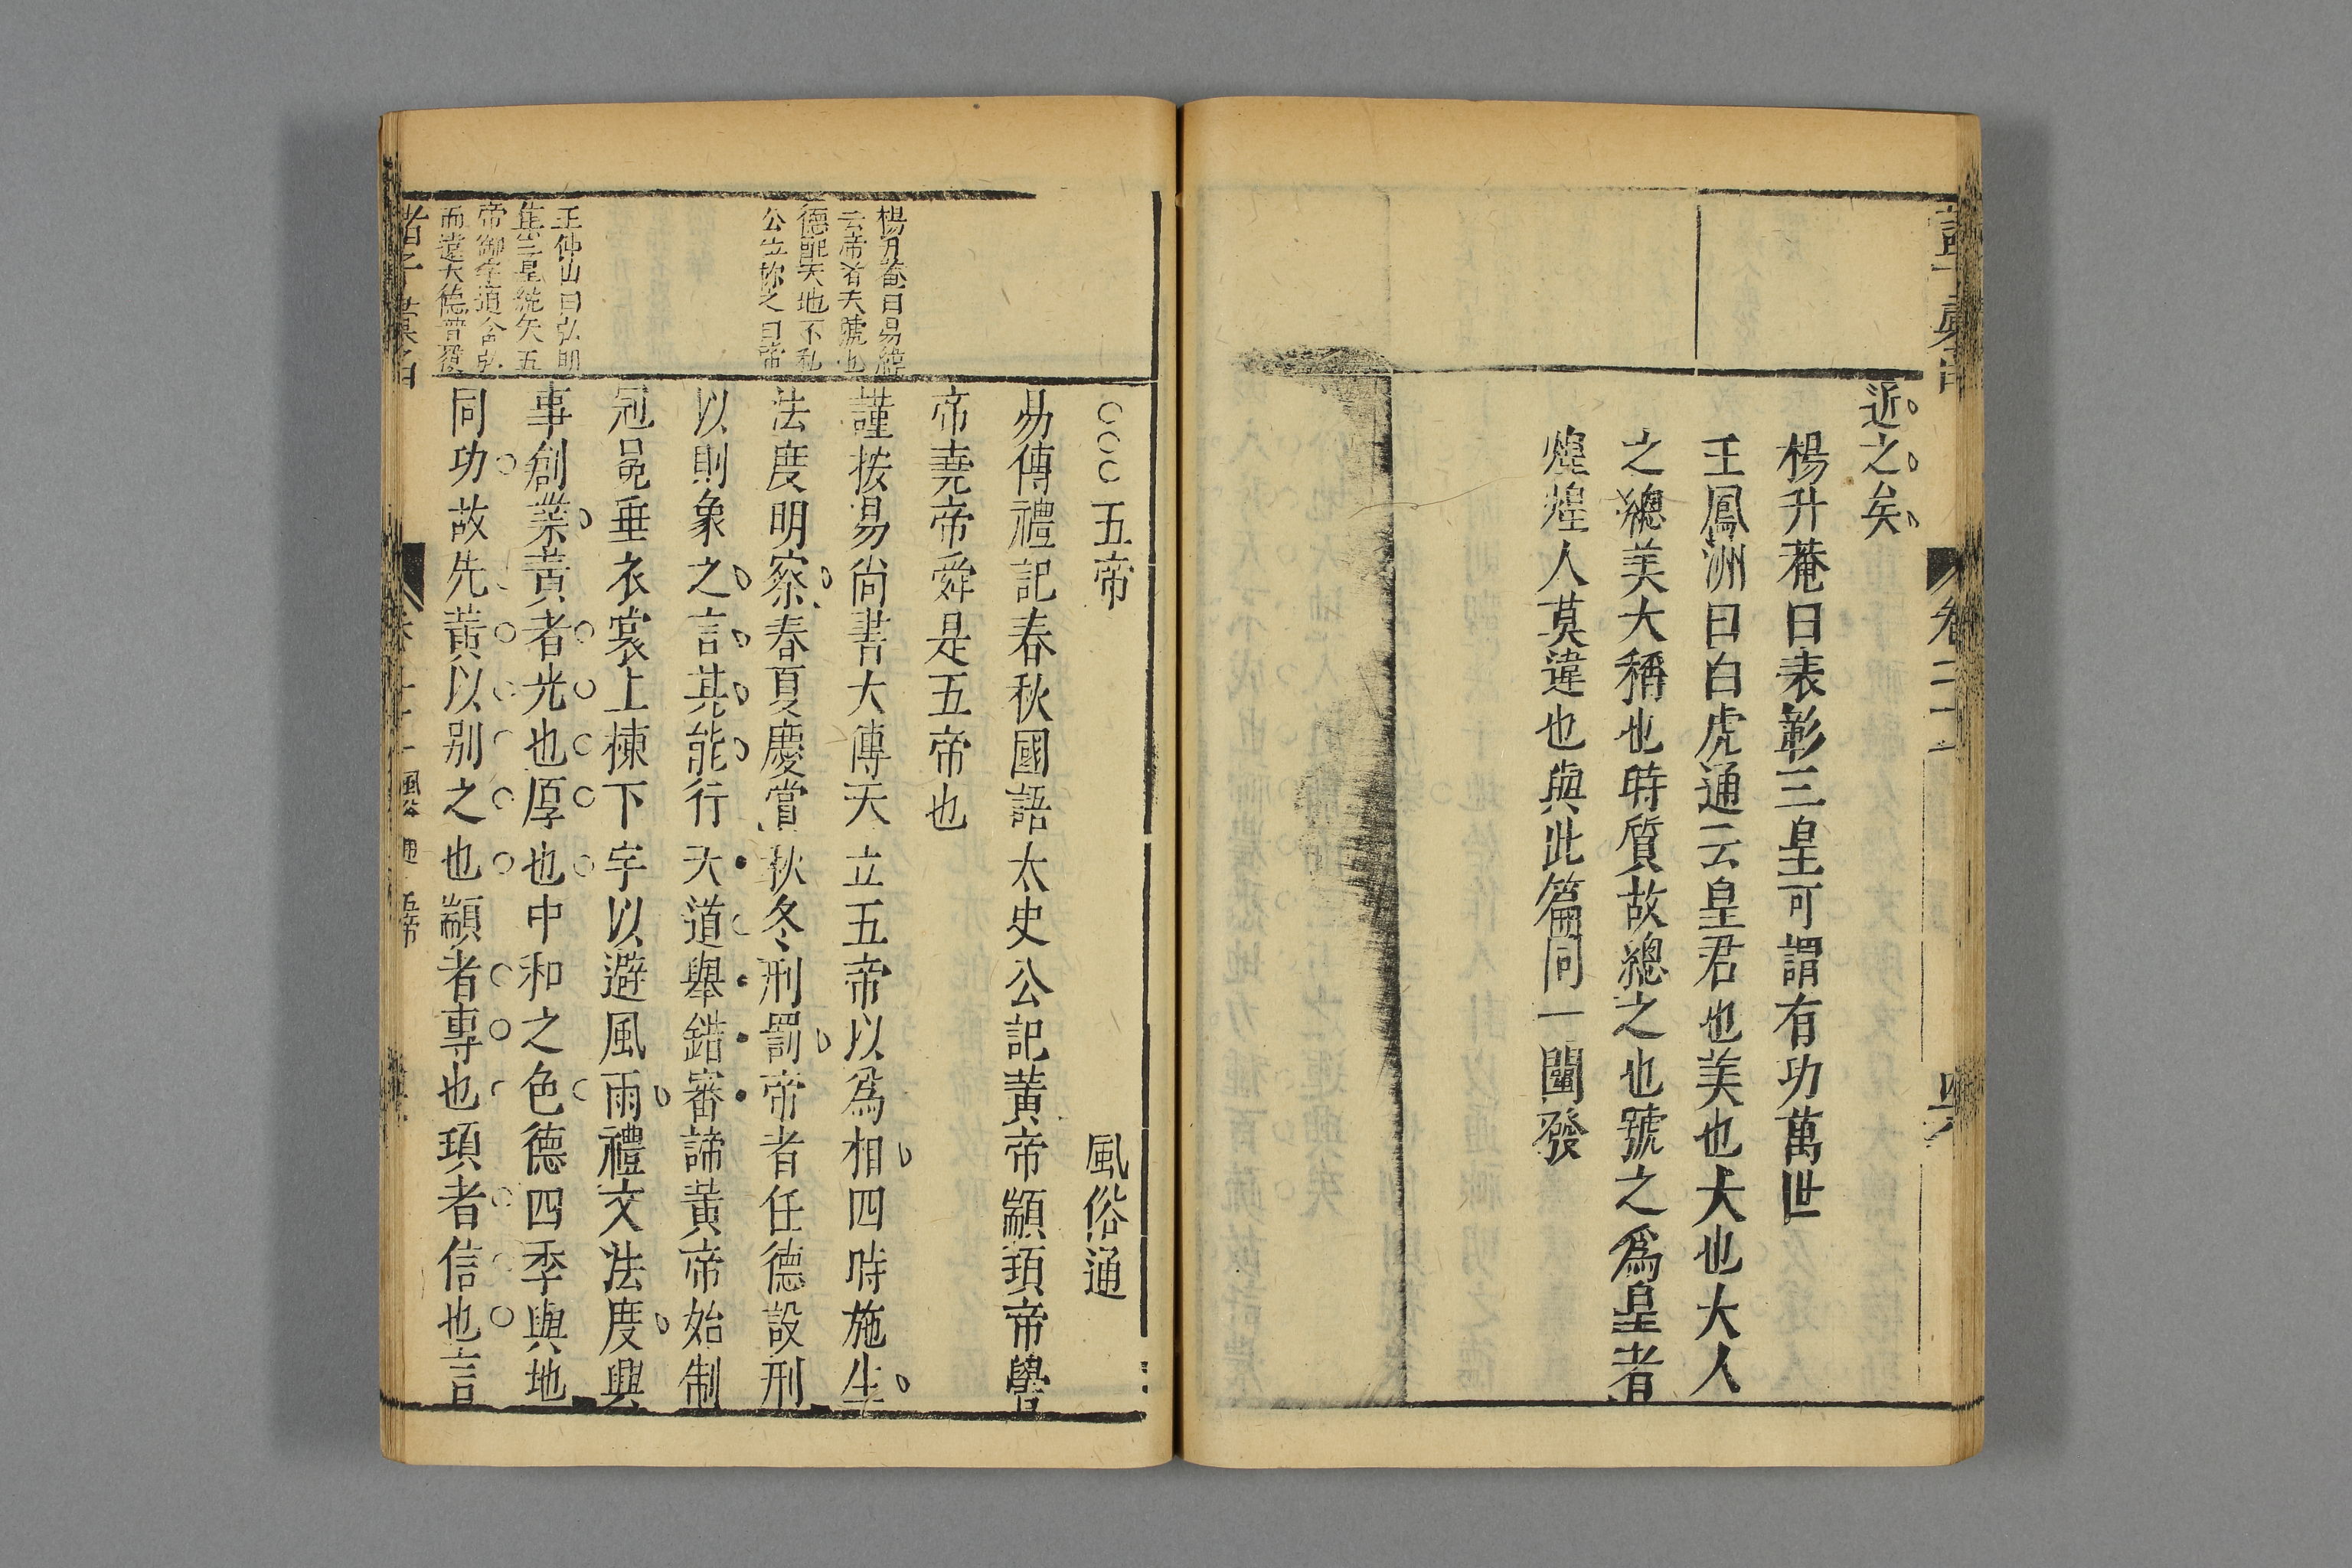 近之矣
楊升菴曰表彰三皇可謂有功萬世
王鳳洲曰白虎通云皇君也美也大也大人
之總美大稱也時質故總之也號之爲皇者
煌煌人莫違也與此篇同一闡發
卷二十一
楊升菴曰易緯
云帝者天號也
德配天地不私
公立称之曰帝
王仲山曰弘明
集三皇統矣五
帝御宇道含弘
而遠大德普覆
○○○五帝 風俗通
易傳禮記春秋國語太史公記黃帝顓頊帝嚳
帝堯帝舜是五帝也
謹按易尚書大傳天立五帝以爲相四時施生
法度明察春夏慶賞秋冬刑罰帝者任德設刑
以則象之言其能行天道舉錯審諦黃帝始制
冠冕垂衣裳上棟下宇以避風雨禮文法度興
事創業黃者光也厚也中和之色德四季與地
同功故先黃以別之也顓者專也頊者信也言